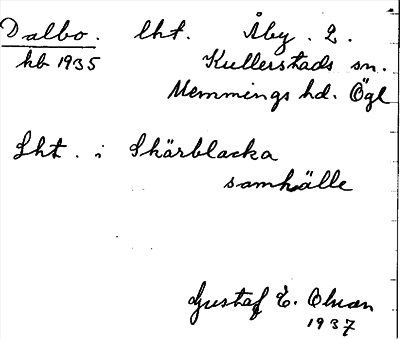 Dalbo. lht. Åby. 2.
hb 1935 Kullerstads sn.
Memmings hd. Ögl
Lht. i Skärblacka
samhälle
Gustaf E. Olson
1937